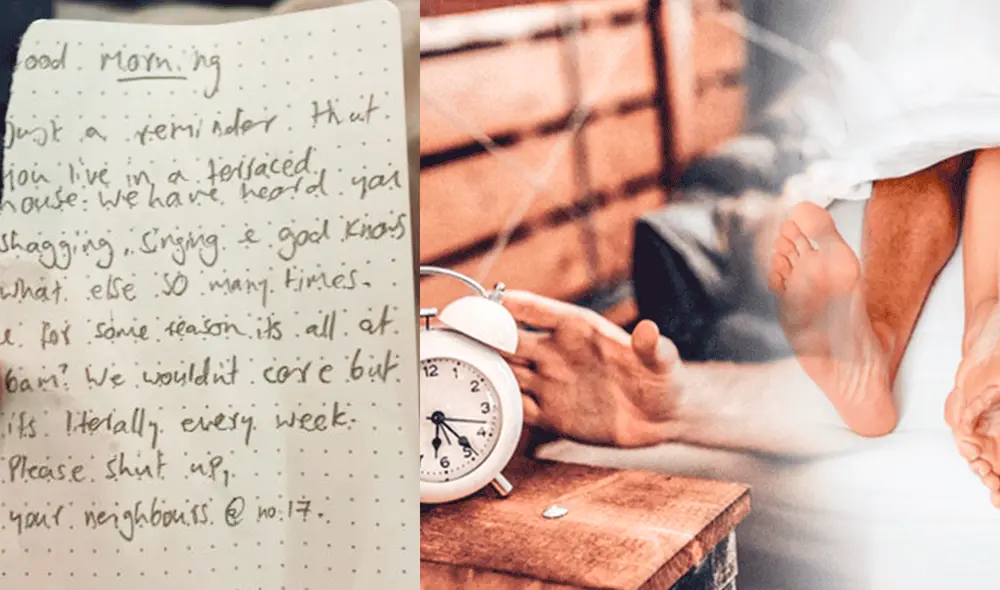 ood Morning
Just a reminder that
you live in a terraced
house. We have heard you
shagging, singing & god knows
what else so many times.
& for some reason its all at
6am? We wouldnt care but
its literally every week.
Please shut up,
your neighbours @ no.17.
12
1
2
3
4
5
6